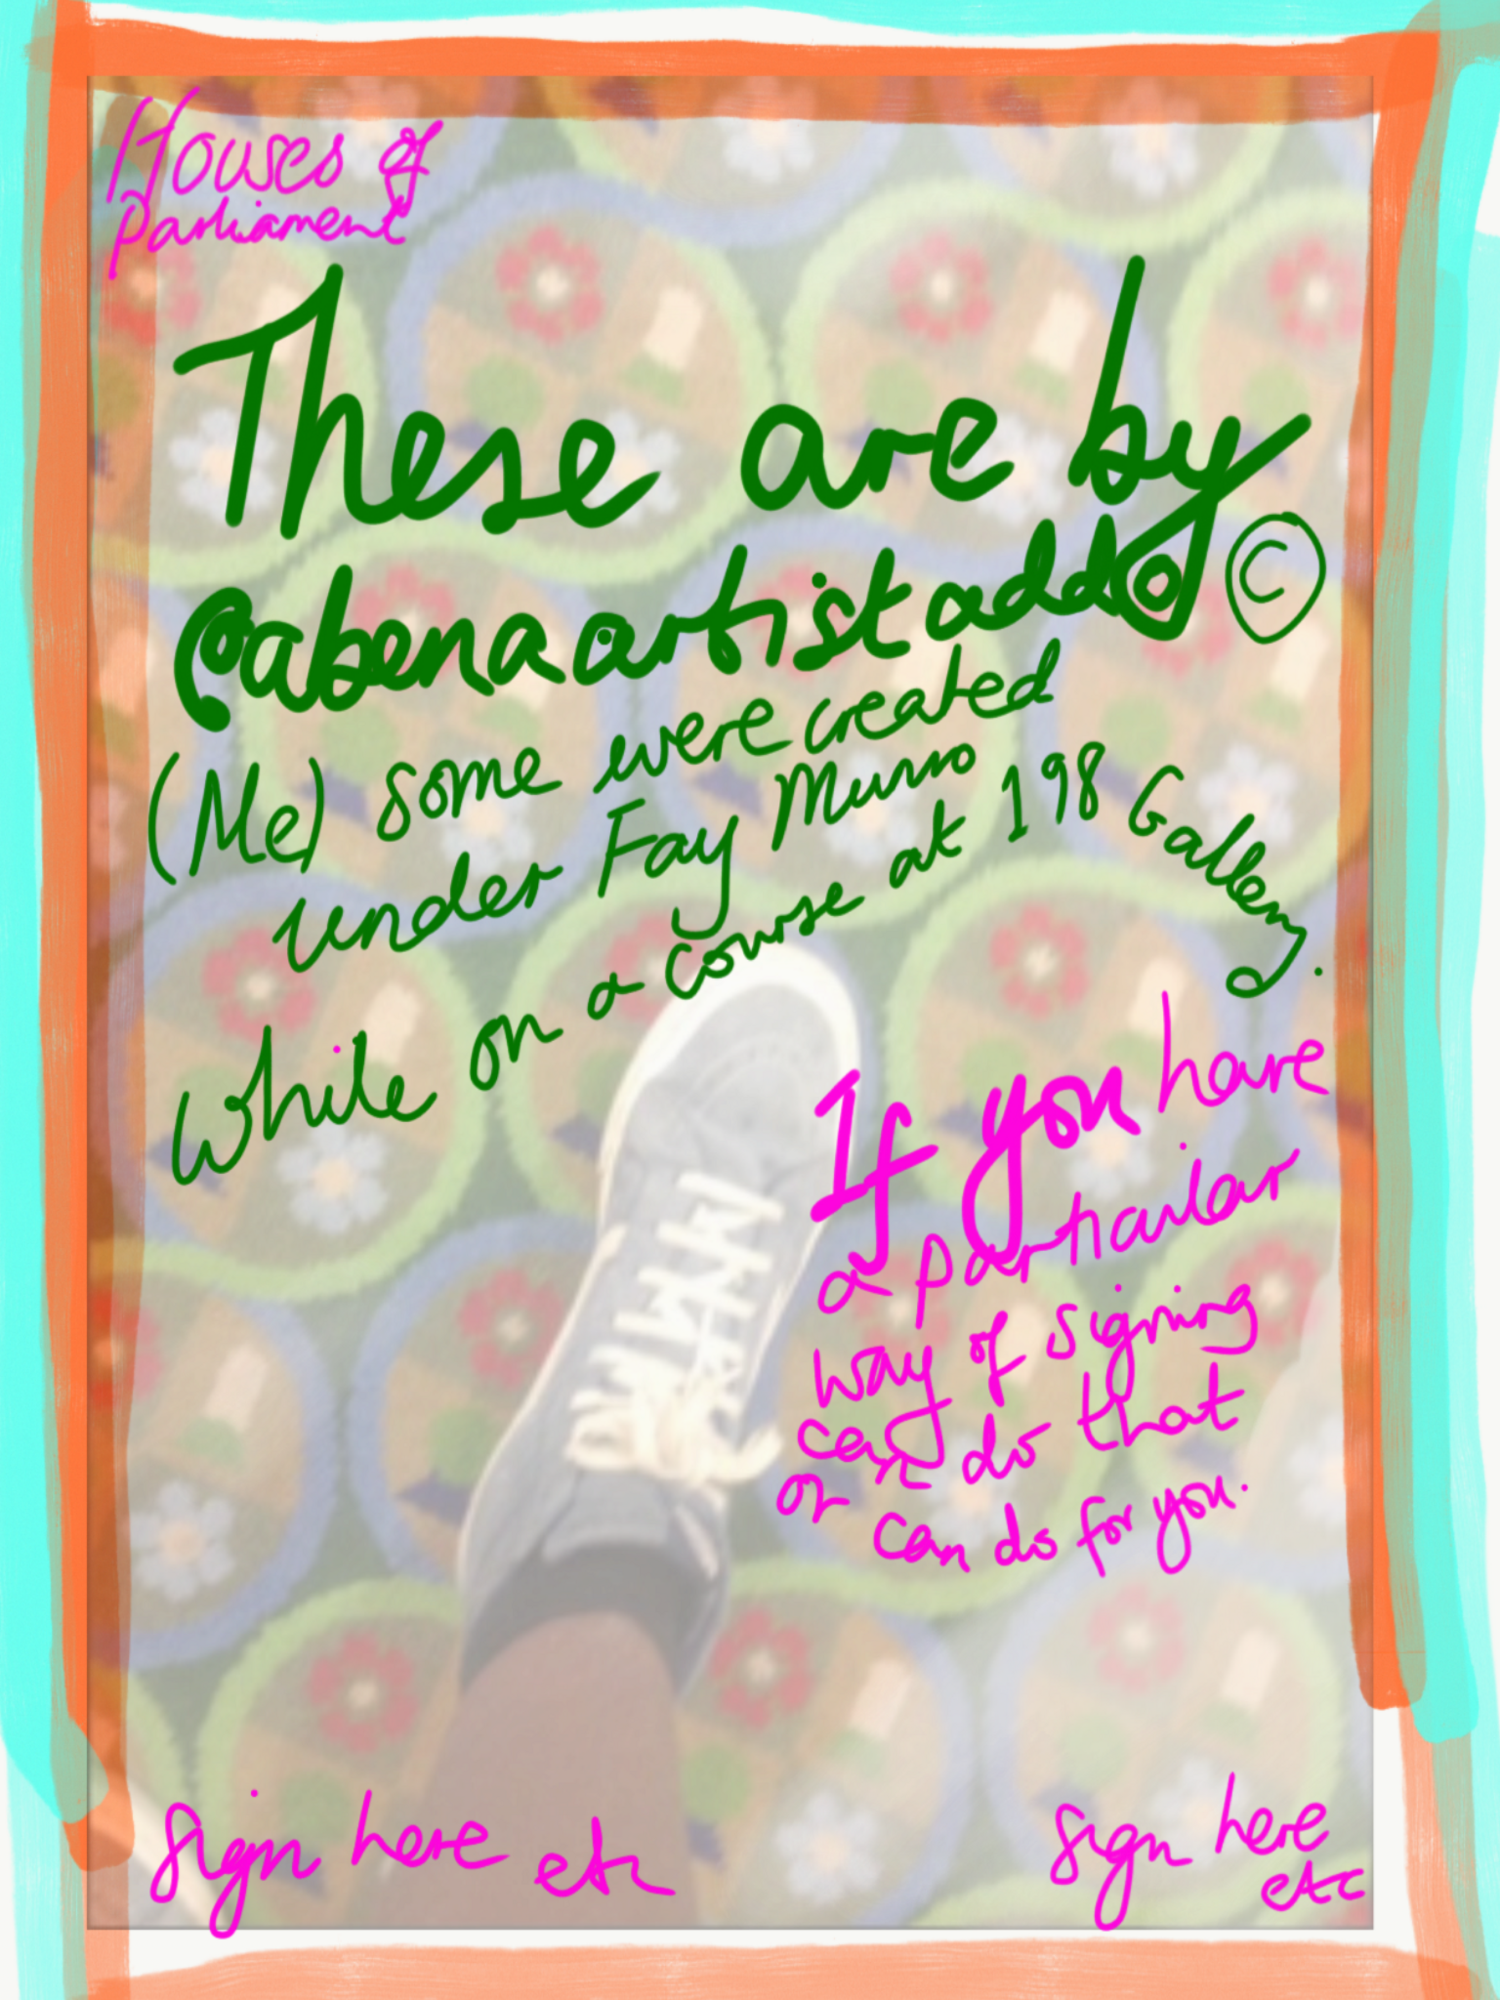 Houses of
Parliament
These are by
@abenaartistaddo ©
(Me) some were created
under Fay Munro
while on a course at 198 Gallery.
If you have
a particular
way of signing
can do that
or
can do for you.
sign here etc
sign here
etc